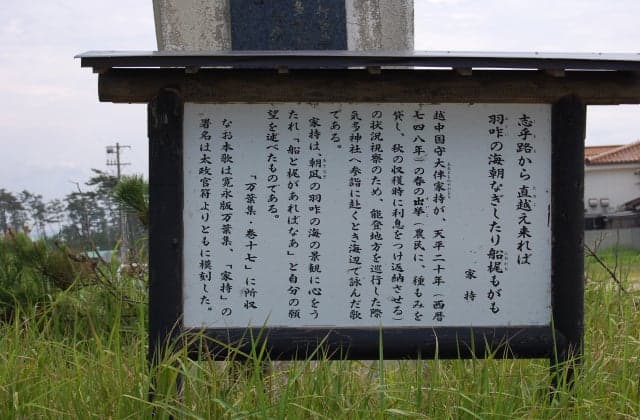 志乎路から直越え来れば
羽咋の海朝なぎしたり船梶もがも
家持
越中国守大伴家持が、天平二十年（西暦
七四八年）の春の出挙（農民に、種もみを
貸し、秋の収穫時に利息をつけ返納させる）
の状況視察のため、能登地方を巡行した際
気多神社へ参詣に赴くとき海辺で詠んだ歌
である。
家持は朝凪の羽咋の海の景観に心をう
たれ「船と梶があればなあ」と自分の願
望を述べたものである。
「万葉集・巻十七」に所収
なお本歌は寛永版万葉集、「家持」の
署名は太政官符よりともに模刻した。